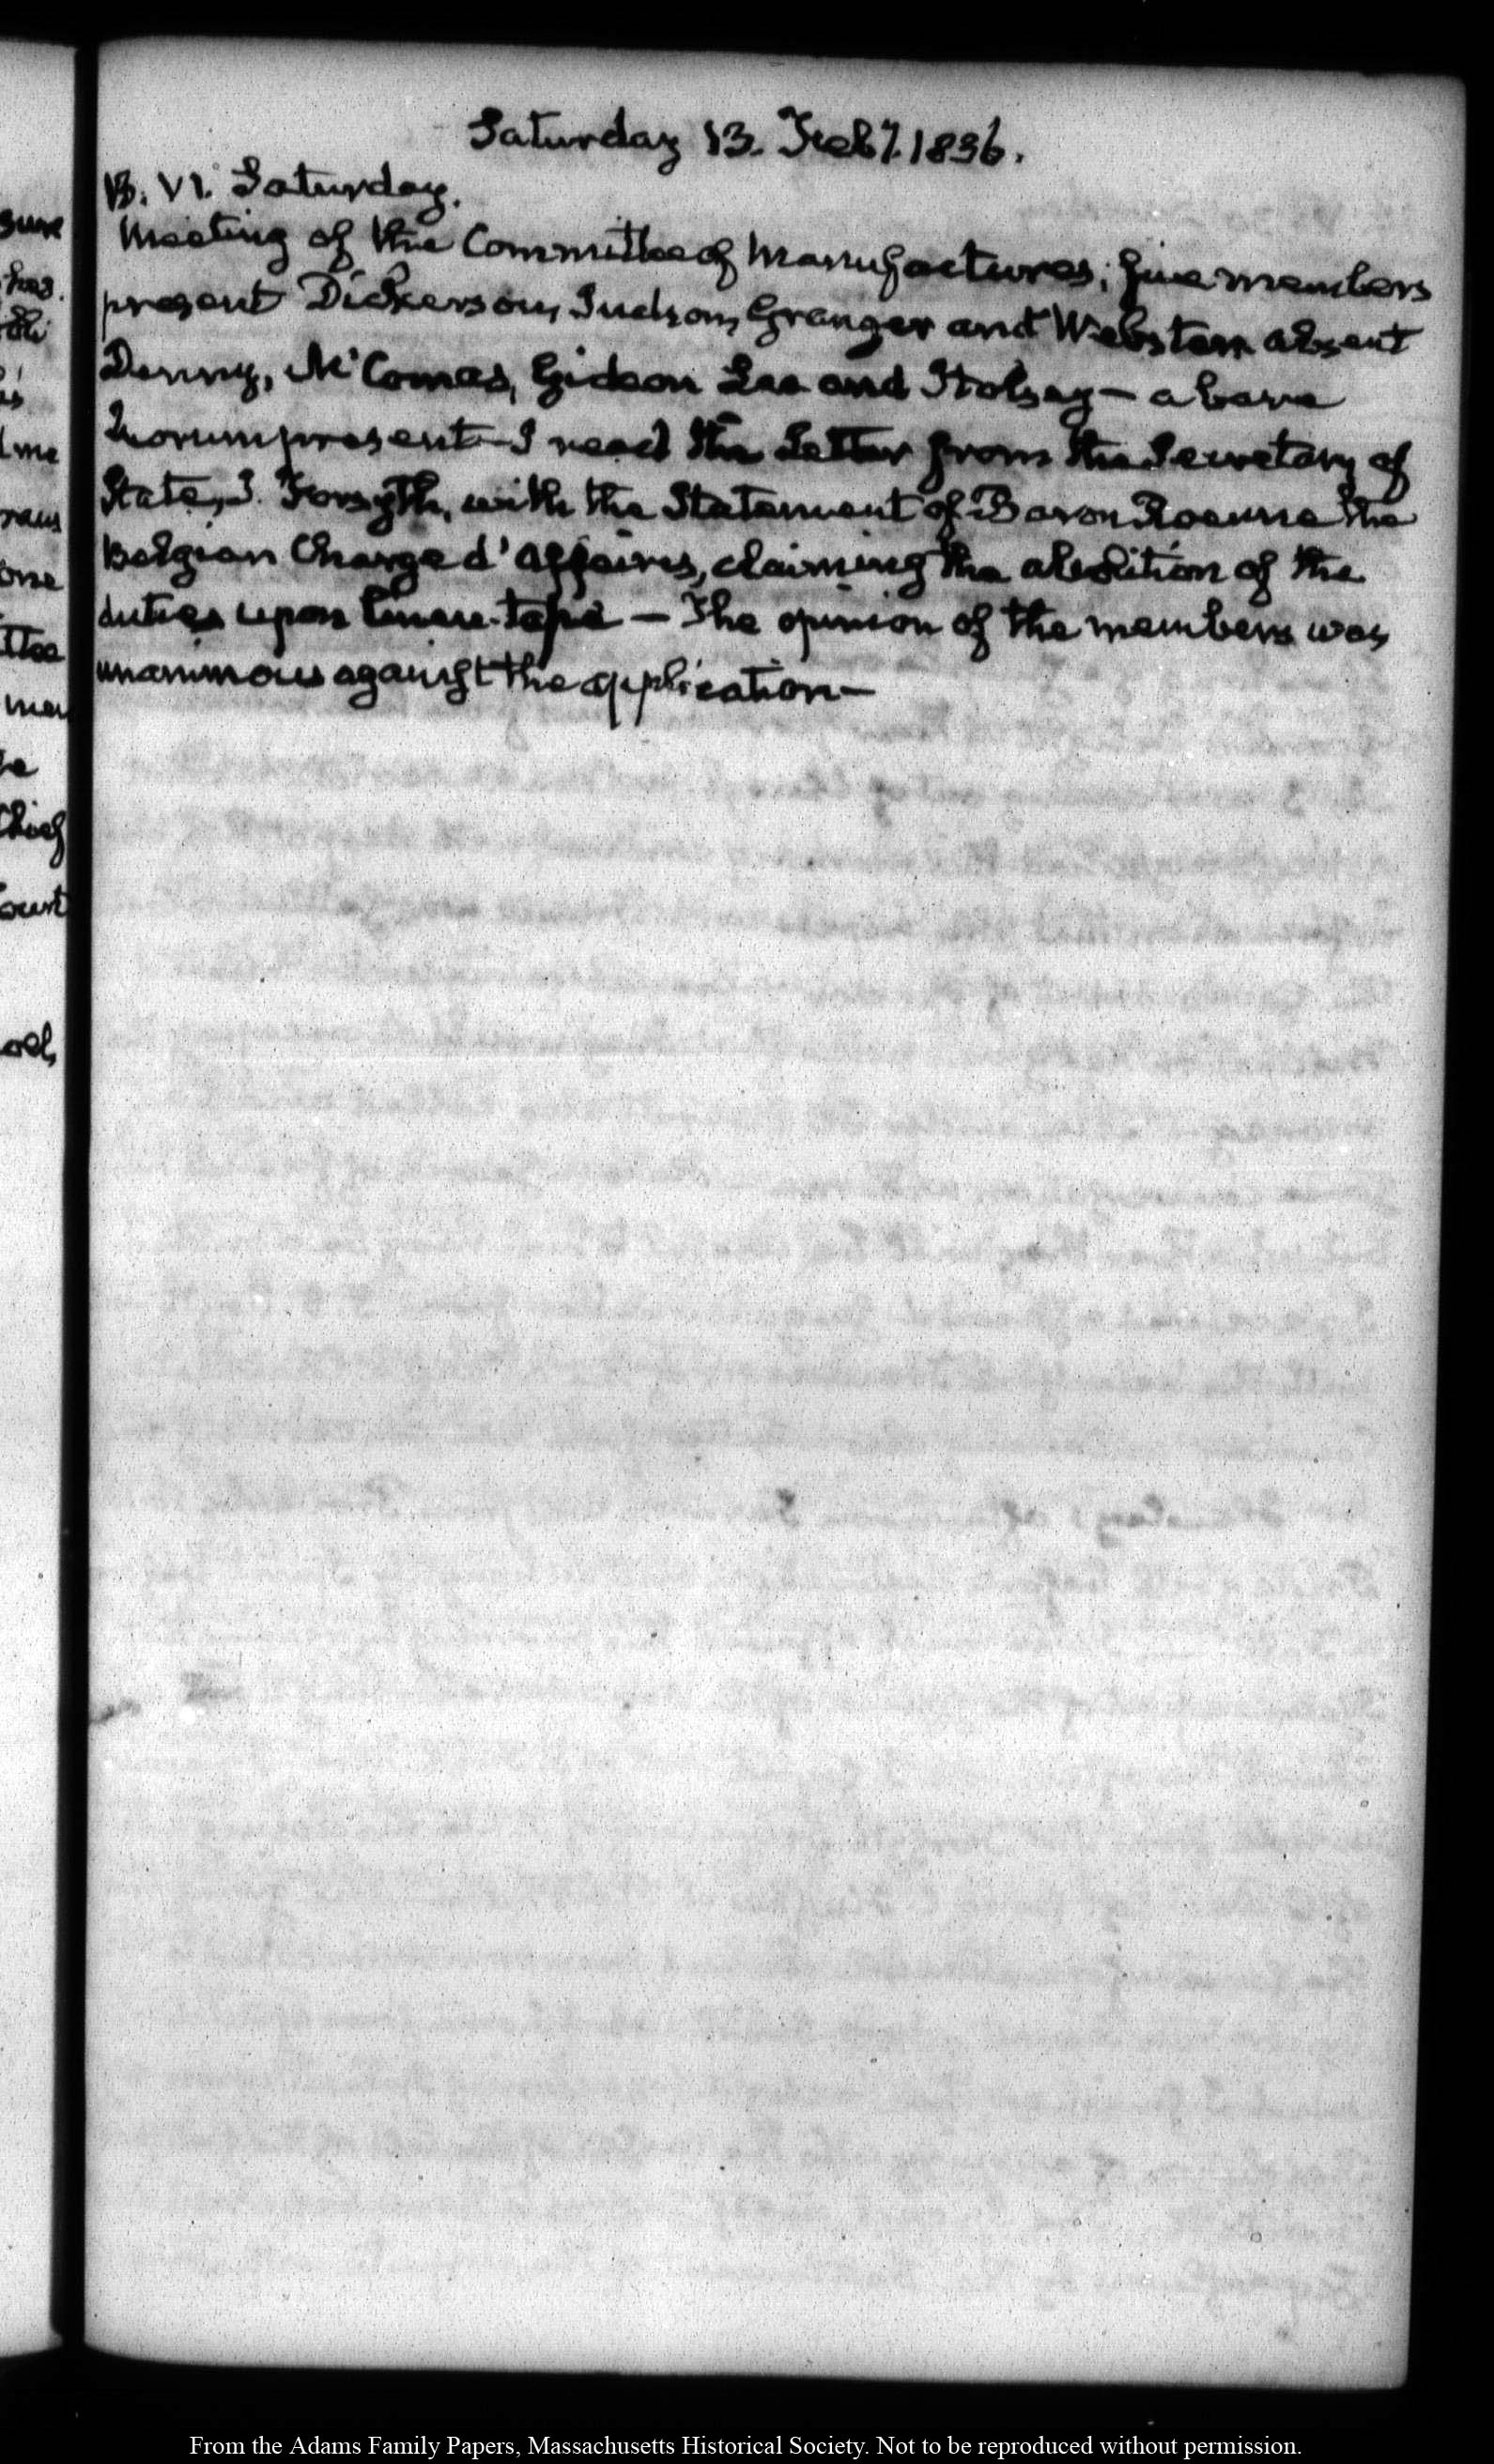 Saturday 13. Feby. 1836.
13. VI. Saturday.
Meeting of the Committee of Manufactures; five members
present Dickerson, Judson, Granger and Webster absent
Denny, McComas, Gideon Lee and Halsey — a bare
Quorum present — I read the Letter from the Secretary of
State, J. Forsyth, with the Statement of Baron the
Belgian Chargé d'Affaires, claiming the abolition of the
duties upon linen-tape — The opinion of the members was
unanimous against the application —
sure
me
one
ttee
chief
ourt
From the Adams Family Papers, Massachusetts Historical Society. Not to be reproduced without permission.